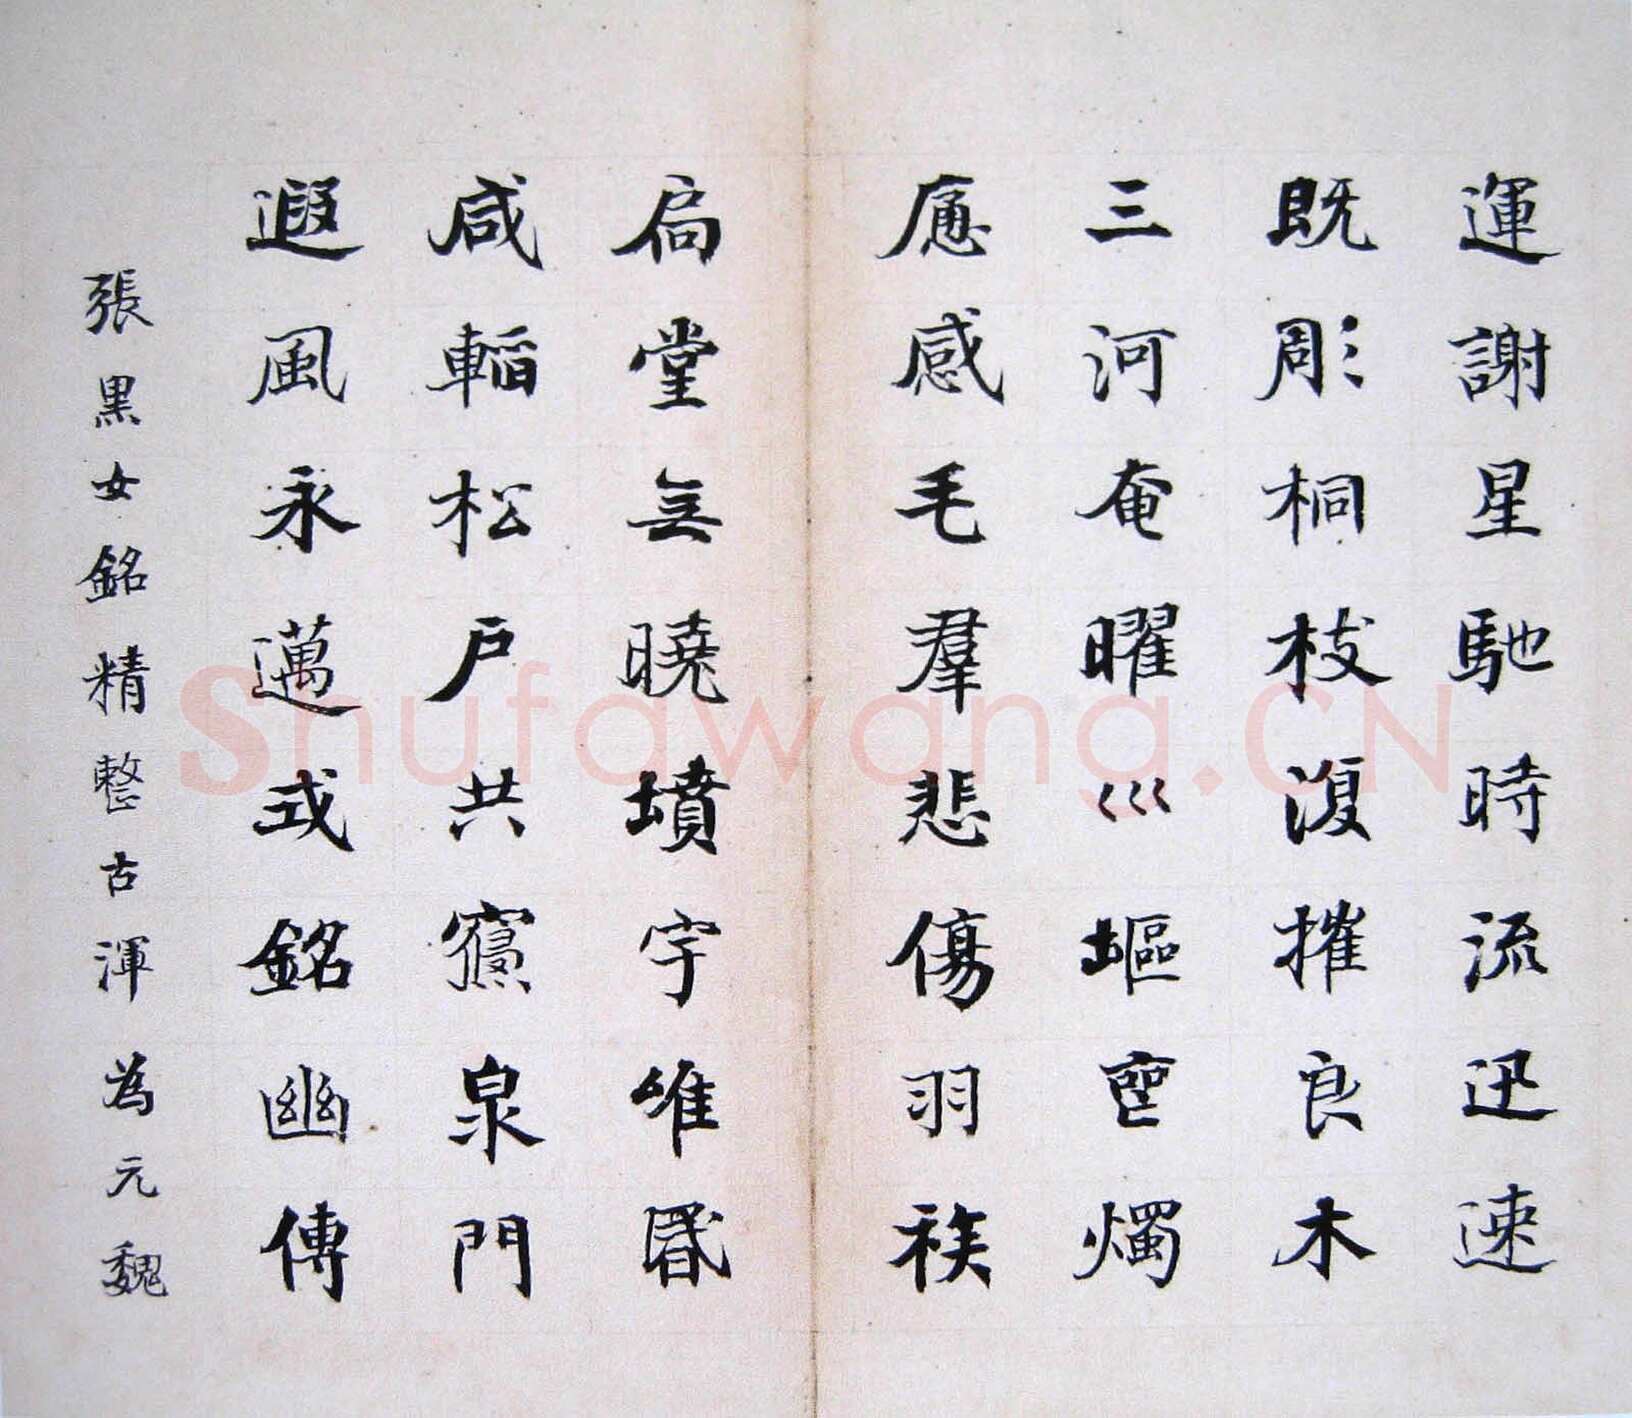 運謝星馳時流迅速
既彫桐枝復摧良木
三河奄曜巛塸㝠燭
應感毛羣悲傷羽族
扃堂無曉墳宇唯昏
咸韜松戶共寢泉門
遐風永邁式銘幽傳
張黑女銘精整古渾為元魏
Shufawang.CN